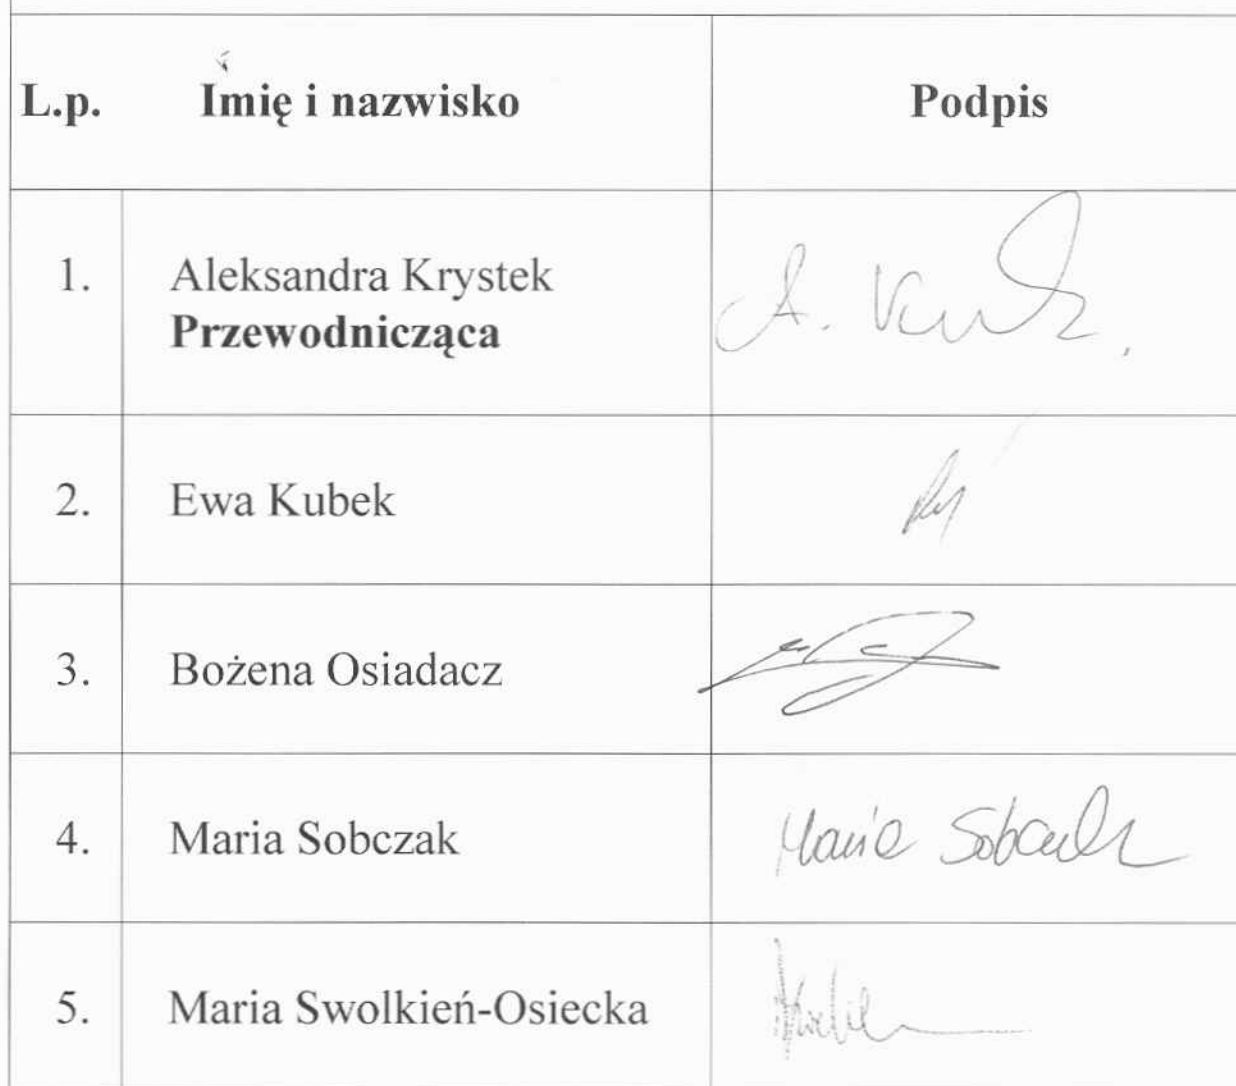 L.p. Imię i nazwisko Podpis
1. Aleksandra Krystek
Przewodnicząca
2. Ewa Kubek
3. Bożena Osiadacz
4. Maria Sobczak Maria Sobczak
5. Maria Swolkień-Osiecka